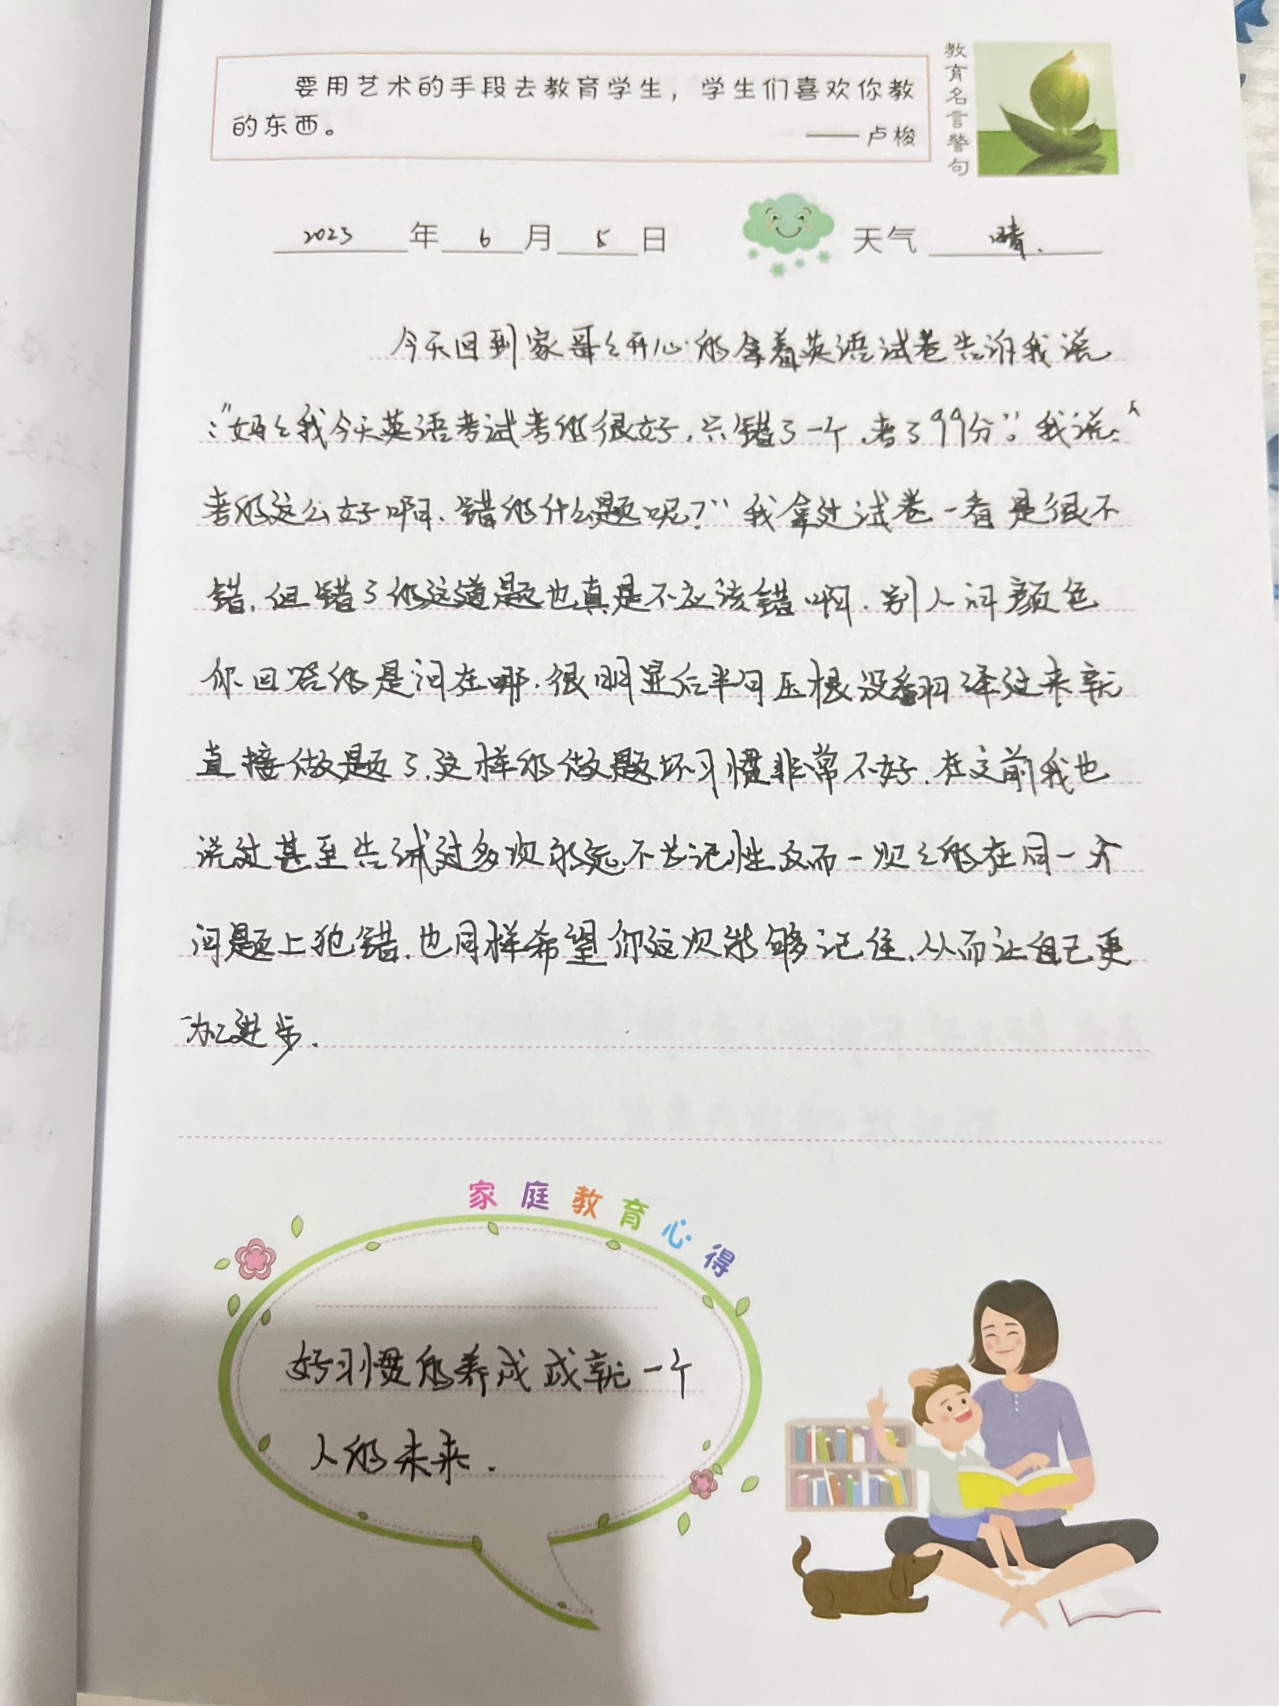 要用艺术的手段去教育学生，学生们喜欢你教
的东西。
——卢梭
教育名言警句
2023年6月5日 天气 晴.
今天回到家哥々开心的拿着英语试卷告诉我说
:"妈々我今天英语考试考的很好,只错了一个,考了99分"。我说:"
考的这么好啊,错的什么题呢?"我拿过试卷一看是很不
错,但错了的这道题也真是不应该错啊,别人问颜色
你回答的是问在哪,很明显后半句压根没翻译过来就
直接做题了,这样的做题坏习惯非常不好,在之前我也
说过甚至告诫过多次永远不长记性反而一次々的在同一个
问题上犯错,也同样希望你这次能够记住,从而让自己更
加进步.
家庭教育心得
好习惯的养成成就一个
人的未来.